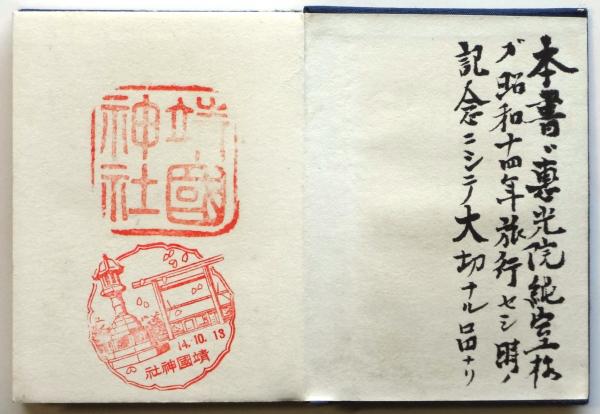 本書ハ惠光院様
ガ昭和十四年旅行セシ時ノ
記念ニシテ大切ナル品ナリ
靖國
神社
14.10.13
靖國神社